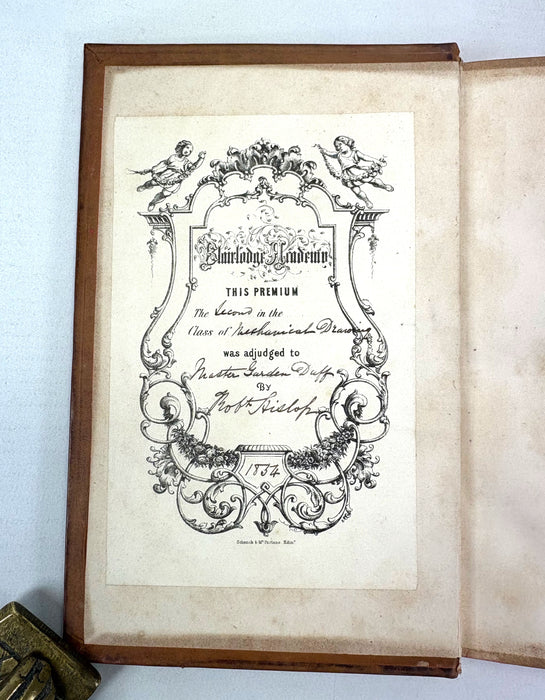 Blairlodge Academy
THIS PREMIUM
The Second in the
Class of Mechanical Drawing
was adjudged to
Master Garden Duff
By
Robt. Hislop
1854
Schenck & McFarlane Edinr.